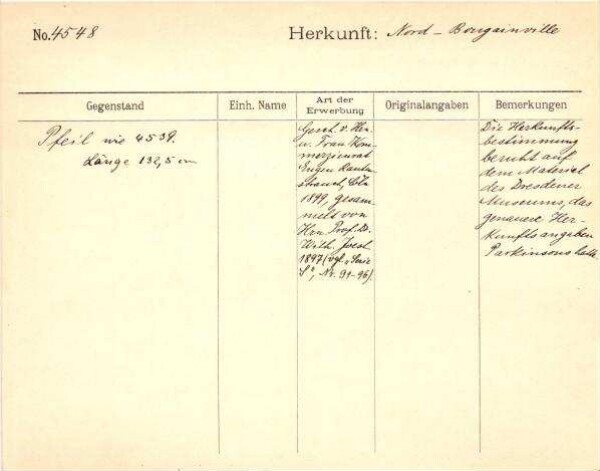 No. 4548
Herkunft: Nord-Bougainville
Gegenstand
Einh. Name
Art der Erwerbung
Originalangaben
Bemerkungen
Pfeil wie 4539.
Länge 132,5 cm
Gesch. v. Hrn.
u. Frau Kom-
merzienrat
Eugen Rauten-
strauch, Cöln
1899, gesam-
melt von
Hrn. Prof. Dr.
Wilh. Joest
1897 (vgl. „Serie
S“, Nr. 91-96).
Die Herkunfts-
bestimmung
beruht auf
dem Material
des Dresdener
Museums, das
genauere Her-
kunftsangaben
Parkinsons hatte.